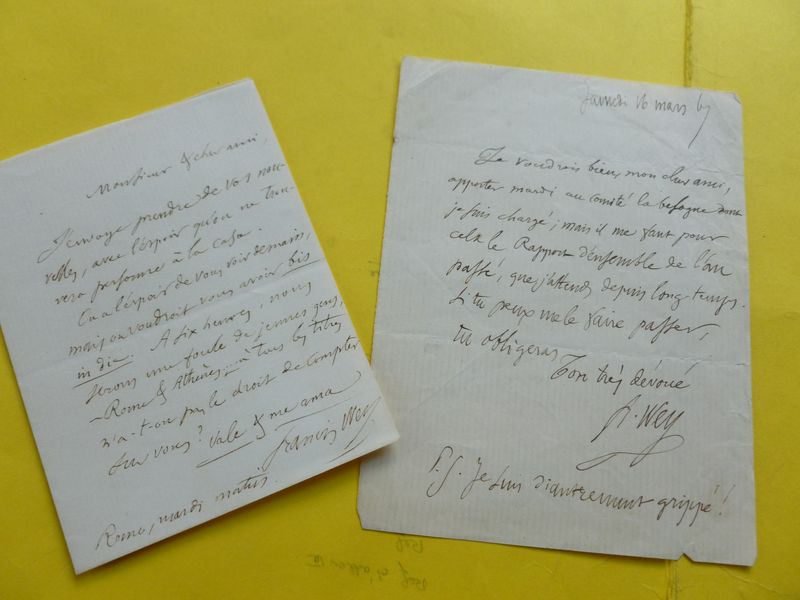 Monsieur & cher ami,
J'envoye prendre de vos nou-
velles, avec l'espoir qu'on ne trou-
vera personne à la casa.
On a l'espoir de vous voir demain,
mais on voudroit vous avoir bis
in die. A six heures, nous
serons une foule de jeunes gens,
Rome & Athènes à tous les titres
n'a-t-on pas le droit de compter
sur vous? Vale & me ama
Francis Wey
Rome, mardi matin.
Samedi 16 mars 67
Je voudrais bien, mon cher ami,
apporter mardi au comité la besogne dont
je suis chargé; mais il me faut pour
cela le Rapport d'ensemble de l'an
passé, que j'attends depuis long temps.
Si tu peux me le faire passer,
tu obligeras
Ton très dévoué
F. Wey
P.S. Je suis diantrement grippé!